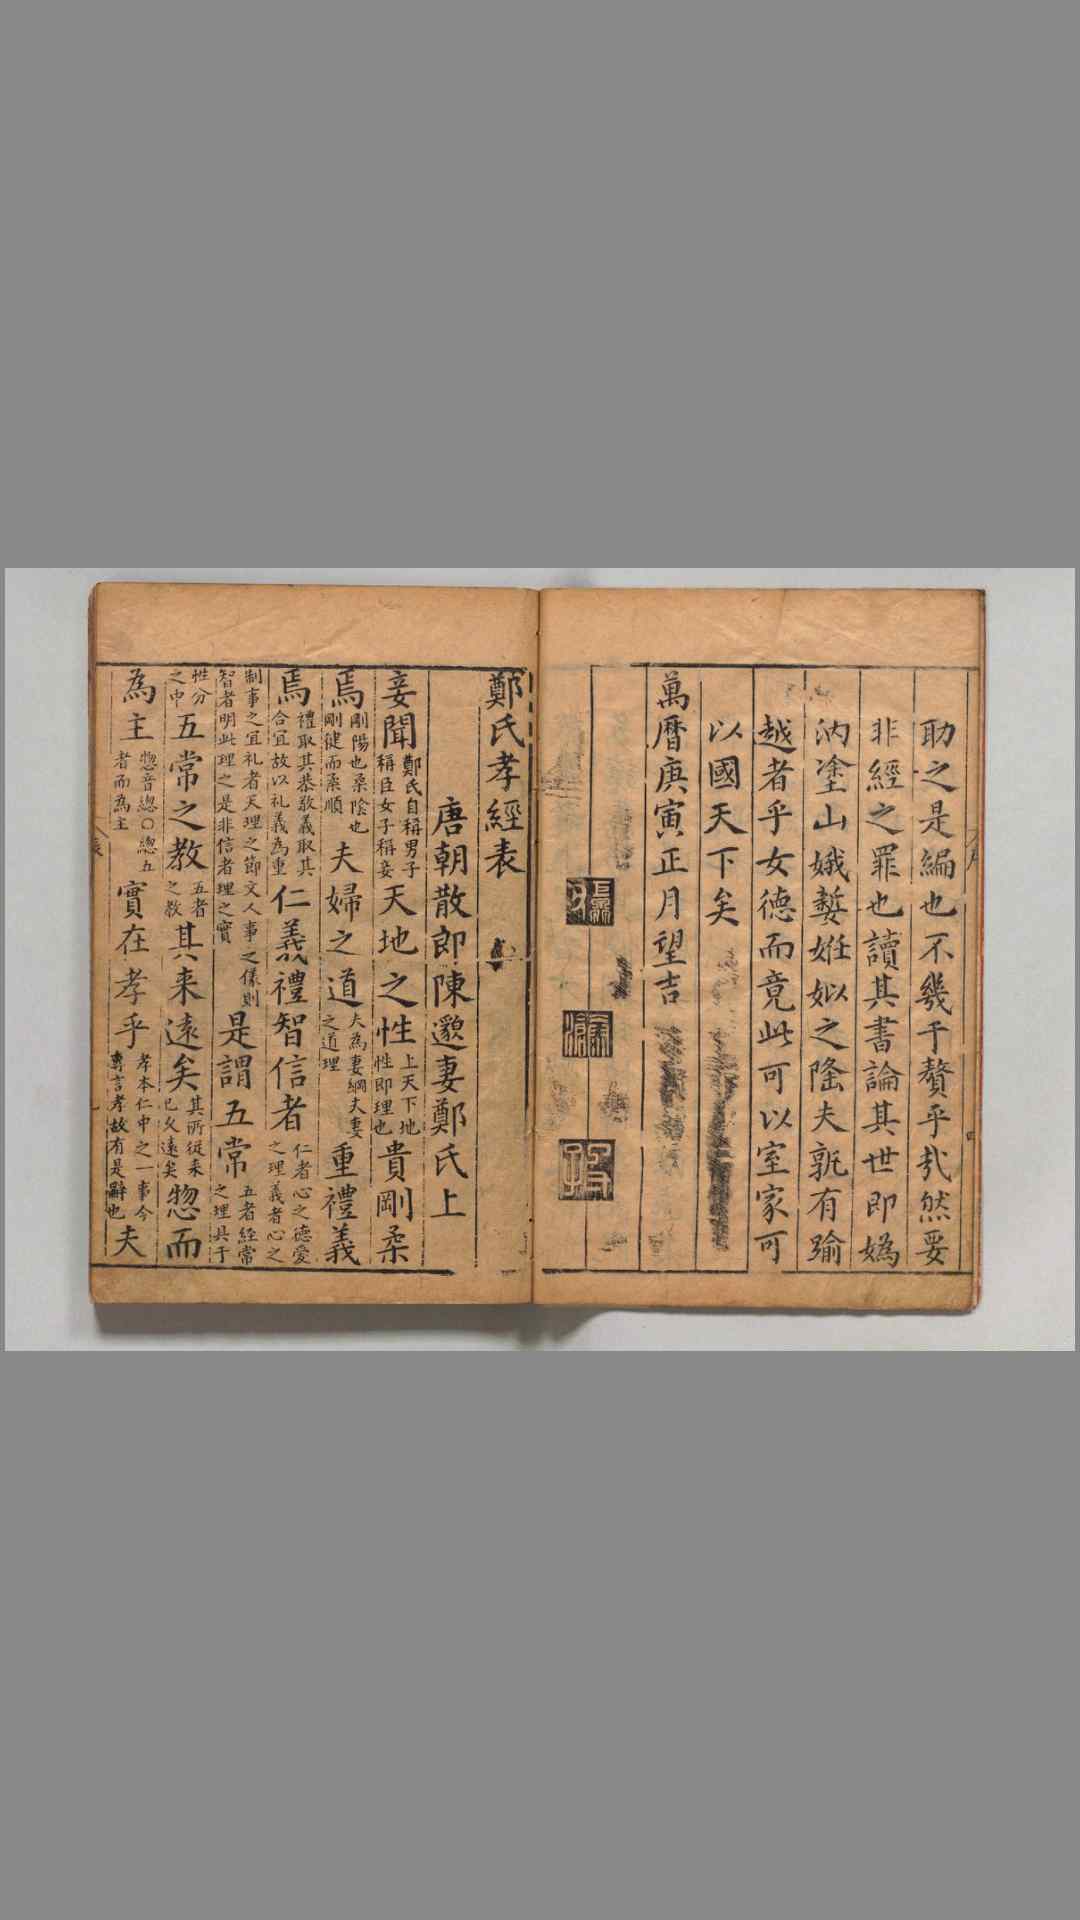 助之是編也不幾于贅乎㢤然要
非經之罪也讀其書論其世即媯
汭塗山娥嫠姙姒之隆夫孰有踰
越者乎女德而竟此可以室家可
以國天下矣
萬曆庚寅正月望吉
鄭氏孝經表
唐朝散郎陳邈妻鄭氏上
妾聞鄭氏自稱男子稱臣女子稱妾天地之性上天下地性即理也貴剛柔
焉剛陽也柔陰也剛健而柔順夫婦之道夫為妻綱夫妻之道理重禮義
焉禮取其恭敬義取其合宜故以礼義為重仁義禮智信者仁者心之德愛之理義者心之
制事之宜礼者天理之節文人事之儀則智者明此理之是非信者理之實是謂五常五者經常之理具于
性分之中五常之教五者之教其来遠矣其所從来已久遠矣惣而
為主惣音緫〇緫五者而為主實在孝乎孝本仁中之一事今專言孝故有是辭也夫